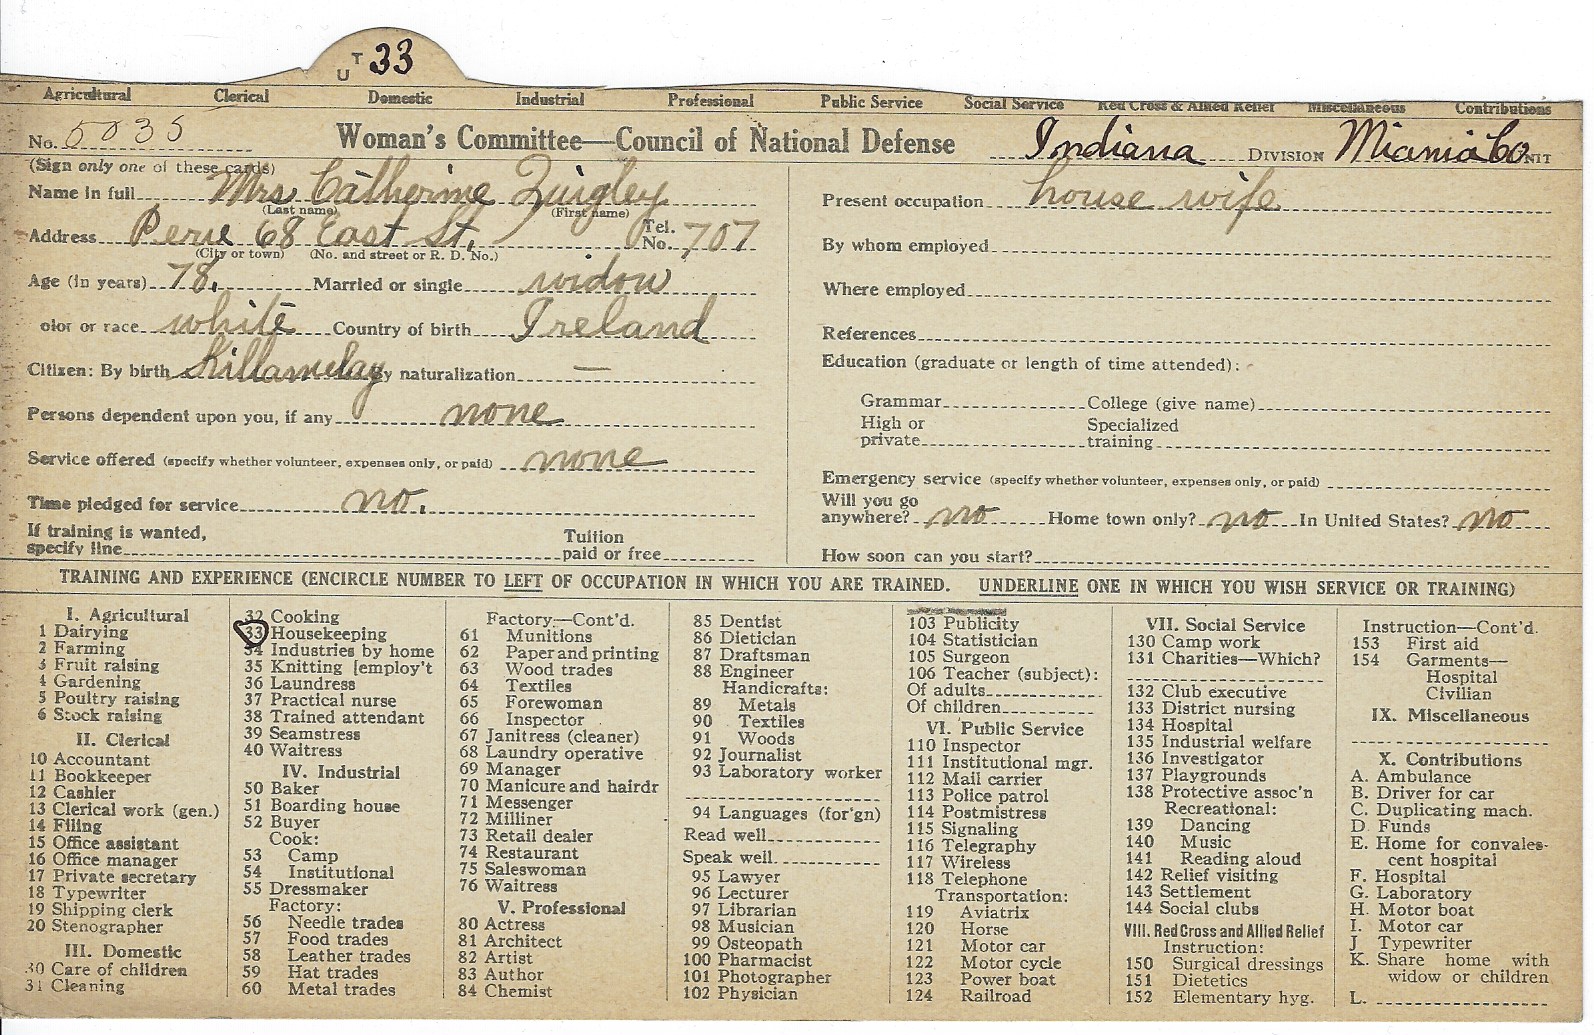 U T 33
Agricultural Clerical Domestic Industrial Professional Public Service Social Service Red Cross & Allied Relief Miscellaneous Contributions
No. 5035 Woman's Committee—Council of National Defense Indiana DIVISION Miamia Co UNIT
(Sign only one of these cards)
Name in full Mrs Catherine Quigley
(Last name) (First name)
Address Peru 68 East St. Tel. No. 707
(City or town) (No. and street or R. D. No.)
Age (in years) 78. Married or single widow
olor or race white Country of birth Ireland
Citizen: By birth Killarnelay By naturalization —
Persons dependent upon you, if any none
Service offered (specify whether volunteer, expenses only, or paid) none
Time pledged for service no.
If training is wanted,
specify line Tuition paid or free
Present occupation house wife
By whom employed
Where employed
References
Education (graduate or length of time attended):
Grammar College (give name)
High or private Specialized training
Emergency service (specify whether volunteer, expenses only, or paid)
Will you go
anywhere? no Home town only? no In United States? no
How soon can you start?
TRAINING AND EXPERIENCE (ENCIRCLE NUMBER TO LEFT OF OCCUPATION IN WHICH YOU ARE TRAINED. UNDERLINE ONE IN WHICH YOU WISH SERVICE OR TRAINING)
I. Agricultural
1 Dairying
2 Farming
3 Fruit raising
4 Gardening
5 Poultry raising
6 Stock raising
II. Clerical
10 Accountant
11 Bookkeeper
12 Cashier
13 Clerical work (gen.)
14 Filing
15 Office assistant
16 Office manager
17 Private secretary
18 Typewriter
19 Shipping clerk
20 Stenographer
III. Domestic
30 Care of children
31 Cleaning
32 Cooking
33 Housekeeping
34 Industries by home
35 Knitting [employ't
36 Laundress
37 Practical nurse
38 Trained attendant
39 Seamstress
40 Waitress
IV. Industrial
50 Baker
51 Boarding house
52 Buyer
Cook:
53 Camp
54 Institutional
55 Dressmaker
Factory:
56 Needle trades
57 Food trades
58 Leather trades
59 Hat trades
60 Metal trades
Factory:—Cont'd.
61 Munitions
62 Paper and printing
63 Wood trades
64 Textiles
65 Forewoman
66 Inspector
67 Janitress (cleaner)
68 Laundry operative
69 Manager
70 Manicure and hairdr
71 Messenger
72 Milliner
73 Retail dealer
74 Restaurant
75 Saleswoman
76 Waitress
V. Professional
80 Actress
81 Architect
82 Artist
83 Author
84 Chemist
85 Dentist
86 Dietician
87 Draftsman
88 Engineer
Handicrafts:
89 Metals
90 Textiles
91 Woods
92 Journalist
93 Laboratory worker
94 Languages (for'gn)
Read well
Speak well
95 Lawyer
96 Lecturer
97 Librarian
98 Musician
99 Osteopath
100 Pharmacist
101 Photographer
102 Physician
103 Publicity
104 Statistician
105 Surgeon
106 Teacher (subject):
Of adults
Of children
VI. Public Service
110 Inspector
111 Institutional mgr.
112 Mail carrier
113 Police patrol
114 Postmistress
115 Signaling
116 Telegraphy
117 Wireless
118 Telephone
Transportation:
119 Aviatrix
120 Horse
121 Motor car
122 Motor cycle
123 Power boat
124 Railroad
VII. Social Service
130 Camp work
131 Charities—Which?
132 Club executive
133 District nursing
134 Hospital
135 Industrial welfare
136 Investigator
137 Playgrounds
138 Protective assoc'n
Recreational:
139 Dancing
140 Music
141 Reading aloud
142 Relief visiting
143 Settlement
144 Social clubs
VIII. Red Cross and Allied Relief
Instruction:
150 Surgical dressings
151 Dietetics
152 Elementary hyg.
Instruction—Cont'd.
153 First aid
154 Garments—
Hospital
Civilian
IX. Miscellaneous
X. Contributions
A. Ambulance
B. Driver for car
C. Duplicating mach.
D. Funds
E. Home for convales-
cent hospital
F. Hospital
G. Laboratory
H. Motor boat
I. Motor car
J. Typewriter
K. Share home with
widow or children
L.